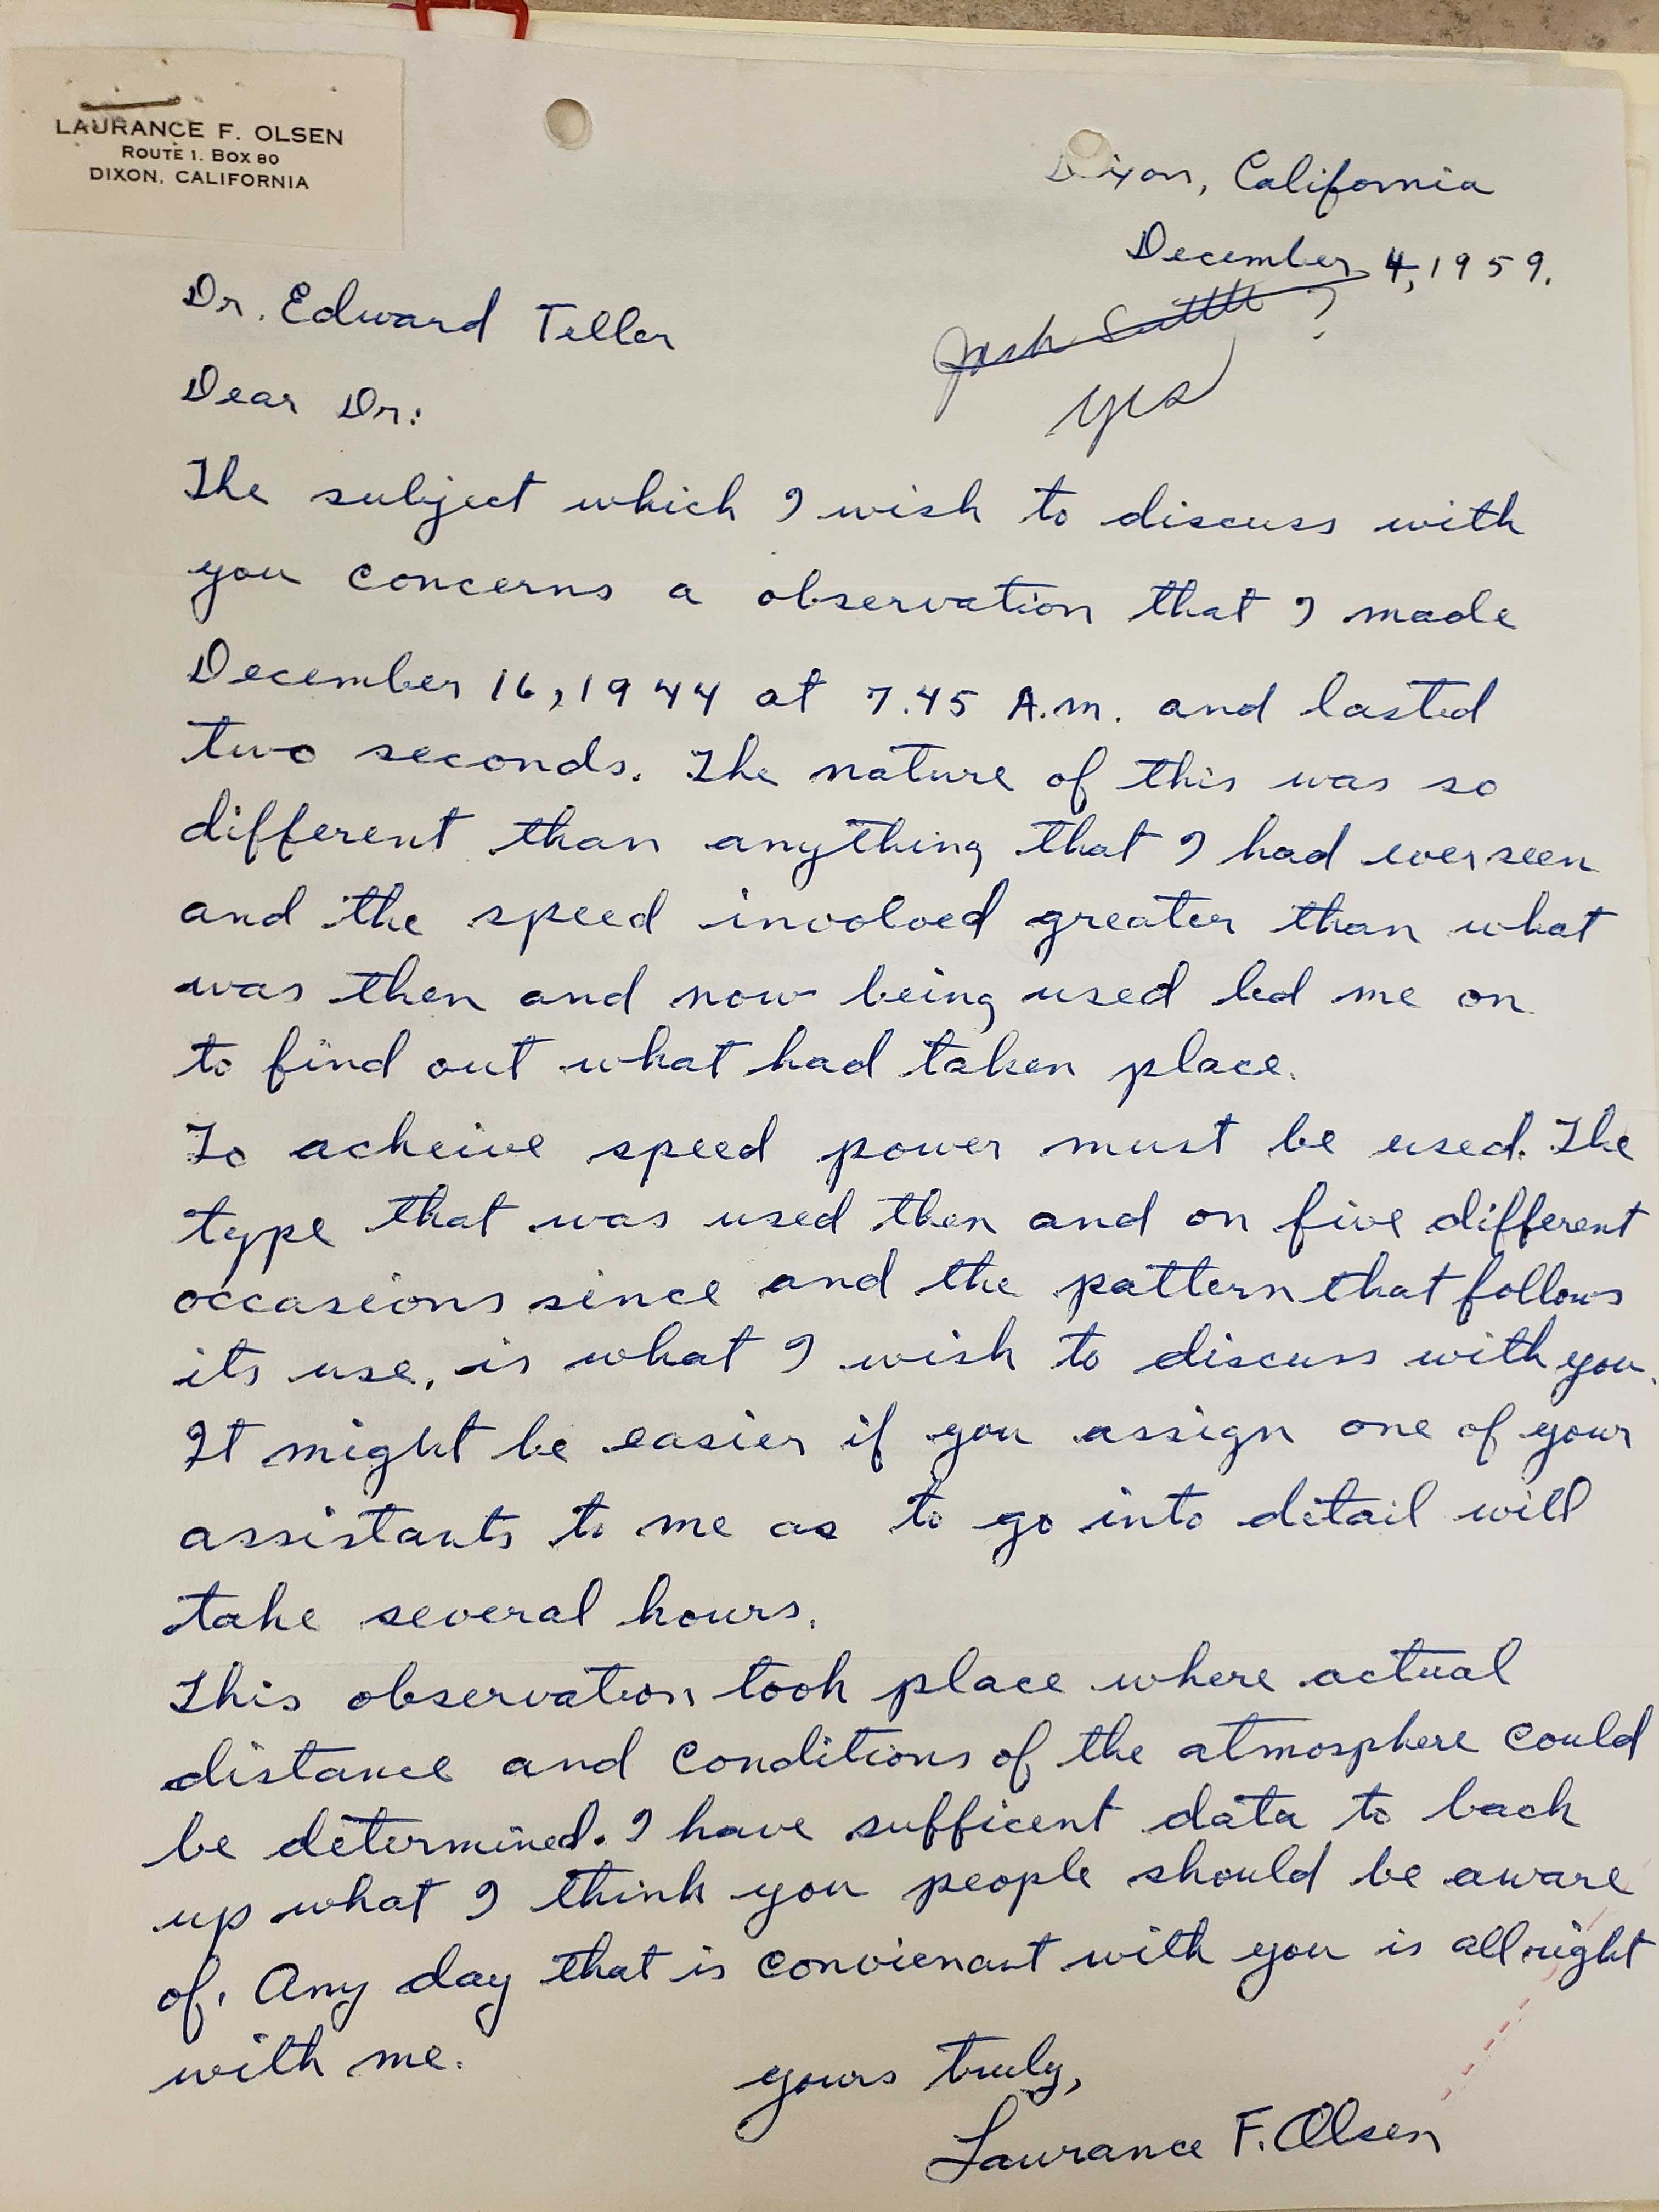 LAURANCE F. OLSEN
ROUTE 1. BOX 80
DIXON, CALIFORNIA
Dixon, California
December 4, 1959.
Dr. Edward Teller
?
yes
Dear Dr:
The subject which I wish to discuss with
you concerns a observation that I made
December 16, 1944 at 7.45 A.m. and lasted
two seconds. The nature of this was so
different than anything that I had ever seen
and the speed involved greater than what
was then and now being used led me on
to find out what had taken place.
To acheive speed power must be used. The
type that was used then and on five different
occasions since and the pattern that follows
its use, is what I wish to discuss with you.
It might be easier if you assign one of your
assistants to me as to go into detail will
take several hours.
This observation took place where actual
distance and conditions of the atmosphere could
be determined. I have sufficent data to back
up what I think you people should be aware
of. Any day that is convienant with you is all right
with me.
yours truly,
Laurance F. Olsen